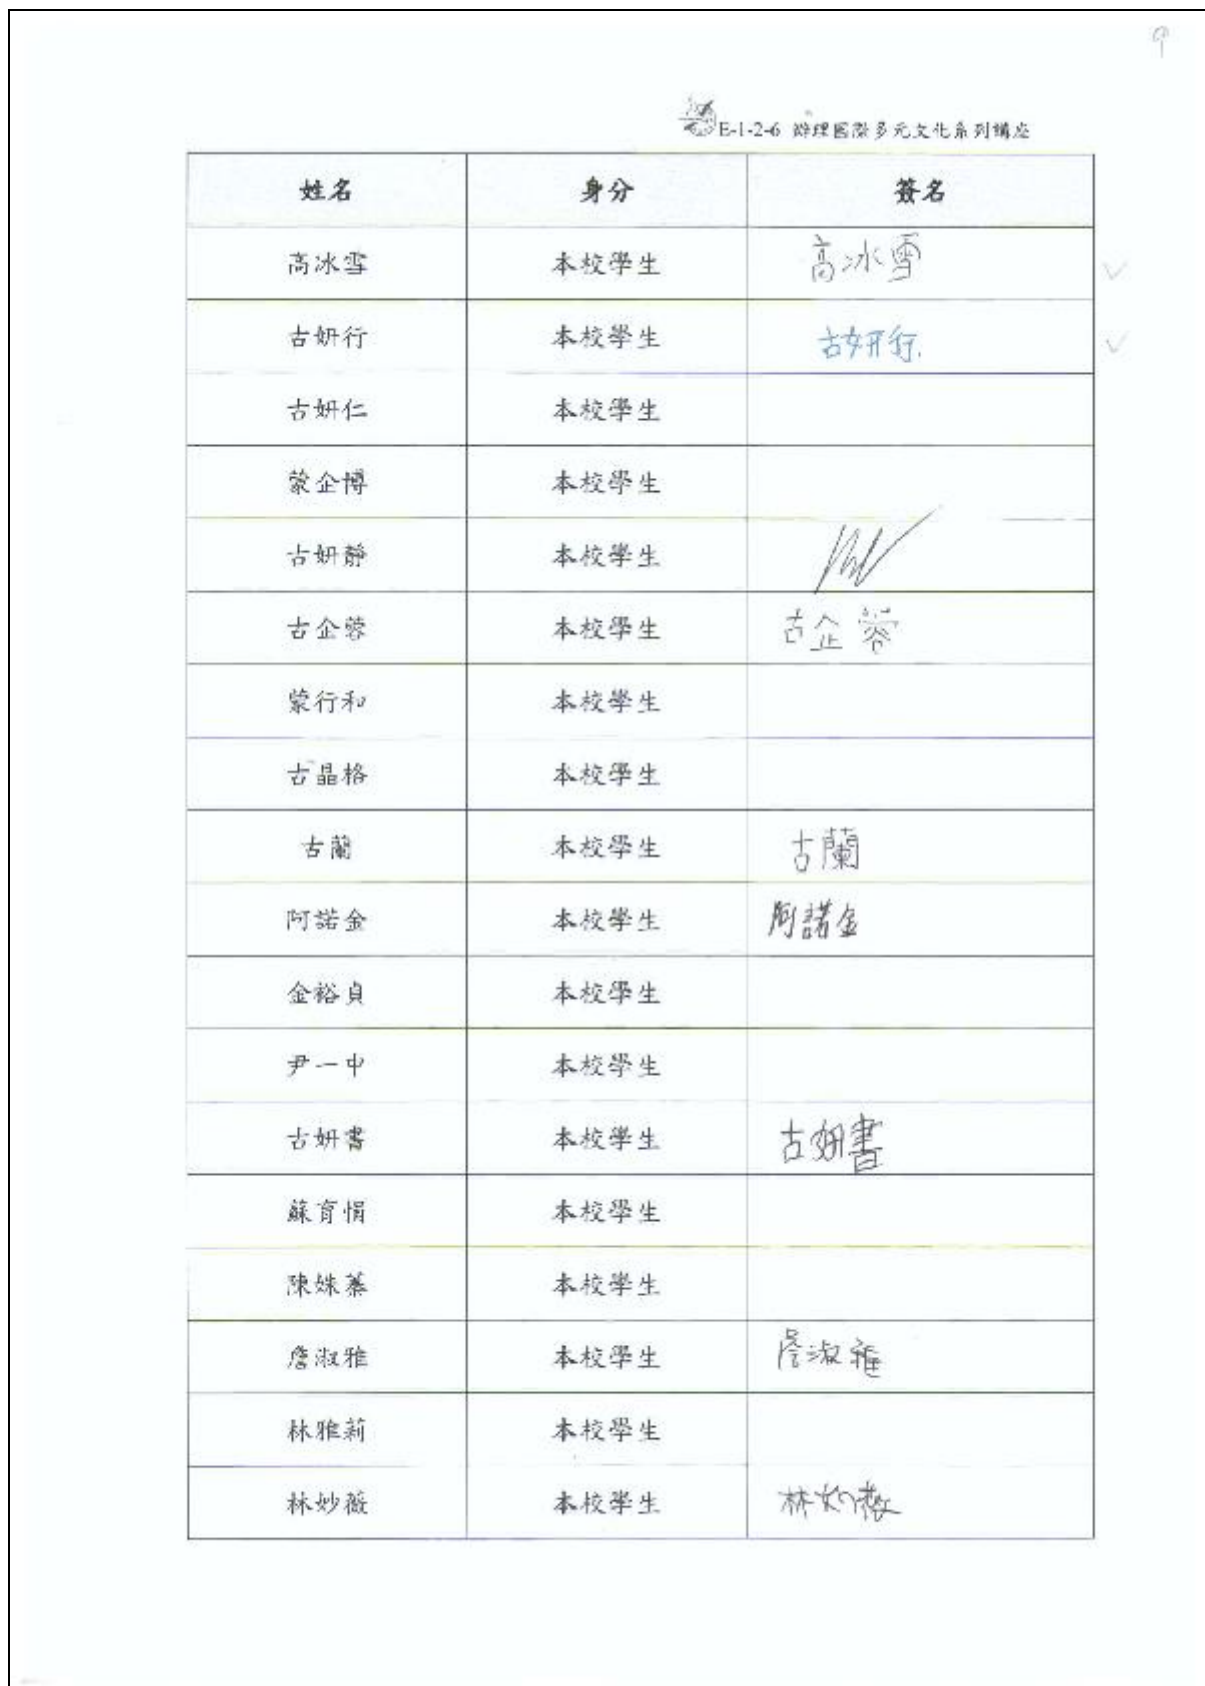 9
E-1-2-6 辦理國際多元文化系列講座
姓名 身分 簽名
高冰雪 本校學生 高冰雪
古妍行 本校學生 古妍行.
古妍仁 本校學生
蒙企博 本校學生
古妍靜 本校學生
古企蓉 本校學生 古企蓉
蒙行和 本校學生
古晶格 本校學生
古蘭 本校學生 古蘭
阿諾金 本校學生 阿諾金
金裕貞 本校學生
尹一中 本校學生
古妍書 本校學生 古妍書
蘇育惼 本校學生
陳姝蓁 本校學生
詹淑雅 本校學生 詹淑雅
林雅莉 本校學生
林妙薇 本校學生 林妙薇